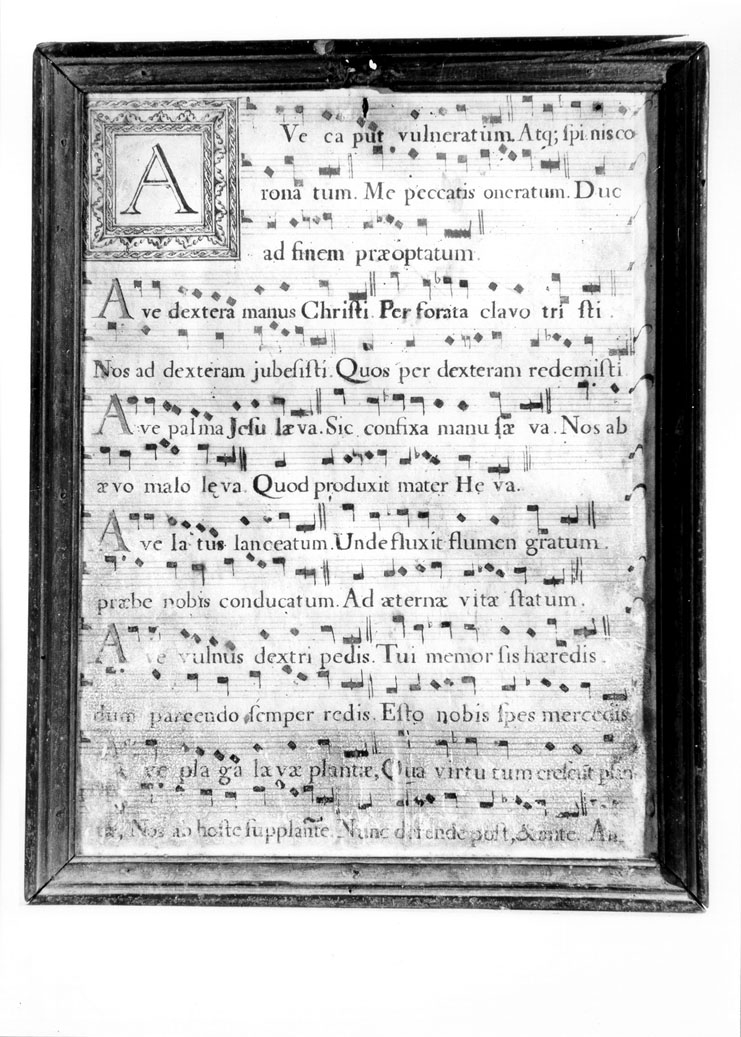 AVe ca put vulneratum. Atq; ſpi nis co
rona tum. Me peccatis oneratum. Duc
ad finem præoptatum.
Ave dextera manus Chriſti. Per forata clavo tri ſti.
Nos ad dexteram jubeſiſti. Quos per dexteram redemiſti
Ave palma Jeſu læva. Sic confixa manu ſæ va. Nos ab
ævo malo lęva. Quod produxit mater Hę va.
Ave la tus lanceatum. Unde fluxit flumen gratum.
præbe nobis conducatum. Ad æternæ vitæ ſtatum.
Ave vulnus dextri pedis. Tui memor ſis hæredis.
dum parcendo ſemper redis. Eſto nobis ſpes mercedis
Ave pla ga lævæ plantæ, Qua virtu tum creſcūt plan
tæ, Nos ab hoſte ſupplante. Nunc defende poſt, & ante. An